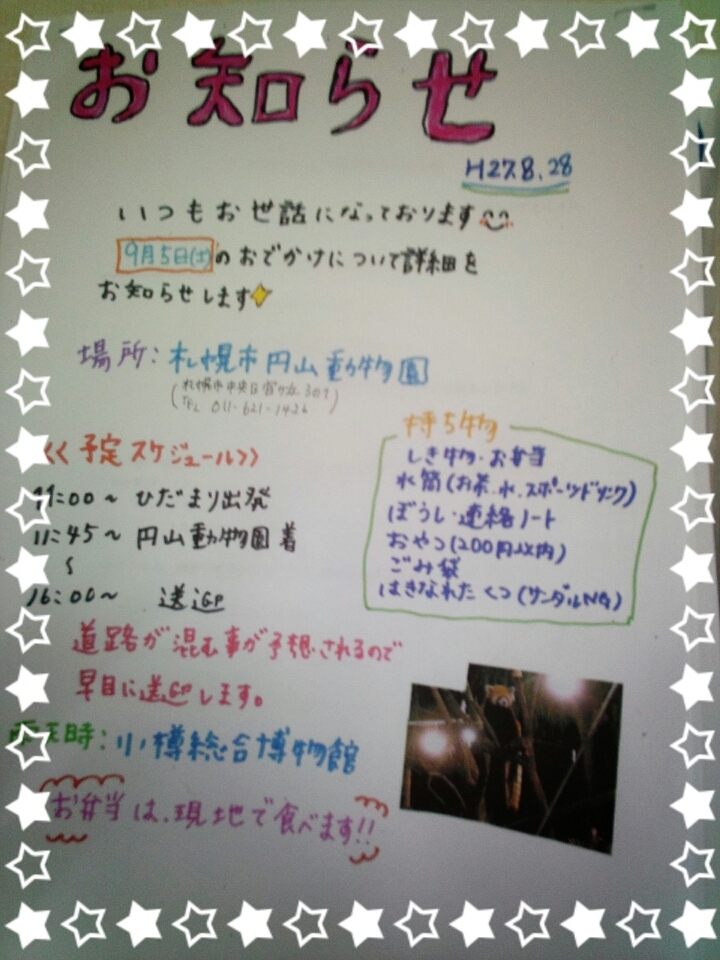 お知らせ
H27.8.28
いつもお世話になっております
9月5日(土)のおでかけについて詳細を
お知らせします
場所:札幌市円山動物園
(札幌市中央区宮ヶ丘 3の1
TEL 011-621-1426
<<予定スケジュール>>
11:00～ ひだまり出発
11:45～ 円山動物園着
～
16:00～ 送迎
道路が混む事が予想されるので
早目に送迎します。
持ち物
しき物・お弁当
水筒(お茶、水、スポーツドリンク)
ぼうし・連絡ノート
おやつ(200円以内)
ごみ袋
はきなれたくつ(サンダルNG)
雨天時:小樽総合博物館
お弁当は、現地で食べます!!